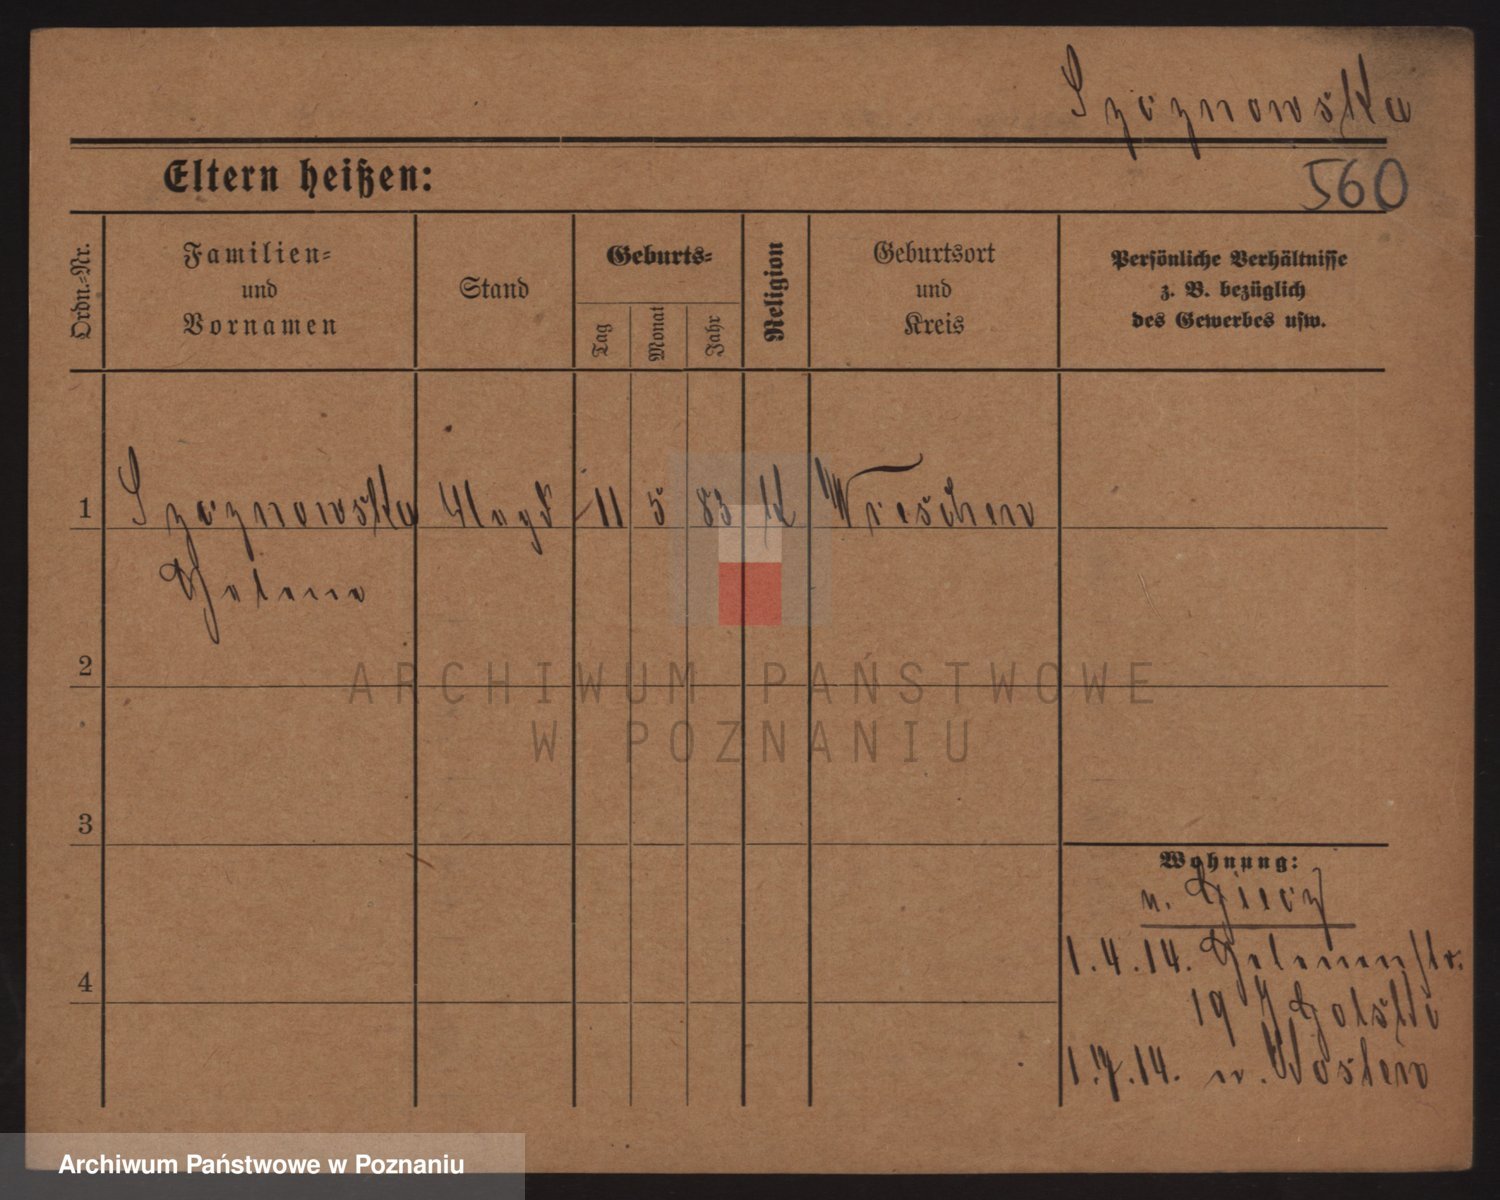 Szoznowska
Eltern heißen:
560
Ordn.-Nr.
Familien-
und
Vornamen
Stand
Geburts-
Tag
Monat
Jahr
Religion
Geburtsort
und
Kreis
Persönliche Verhältnisse
z. B. bezüglich
des Gewerbes usw.
1
Szoznowska Magd 11 5 83 K Wreschen
Helene
2
ARCHIWUM PAŃSTWOWE
W POZNANIU
3
Wohnung:
n.
4
1.4.14. Helenenstr.
19
1.7.14. n.
Archiwum Państwowe w Poznaniu